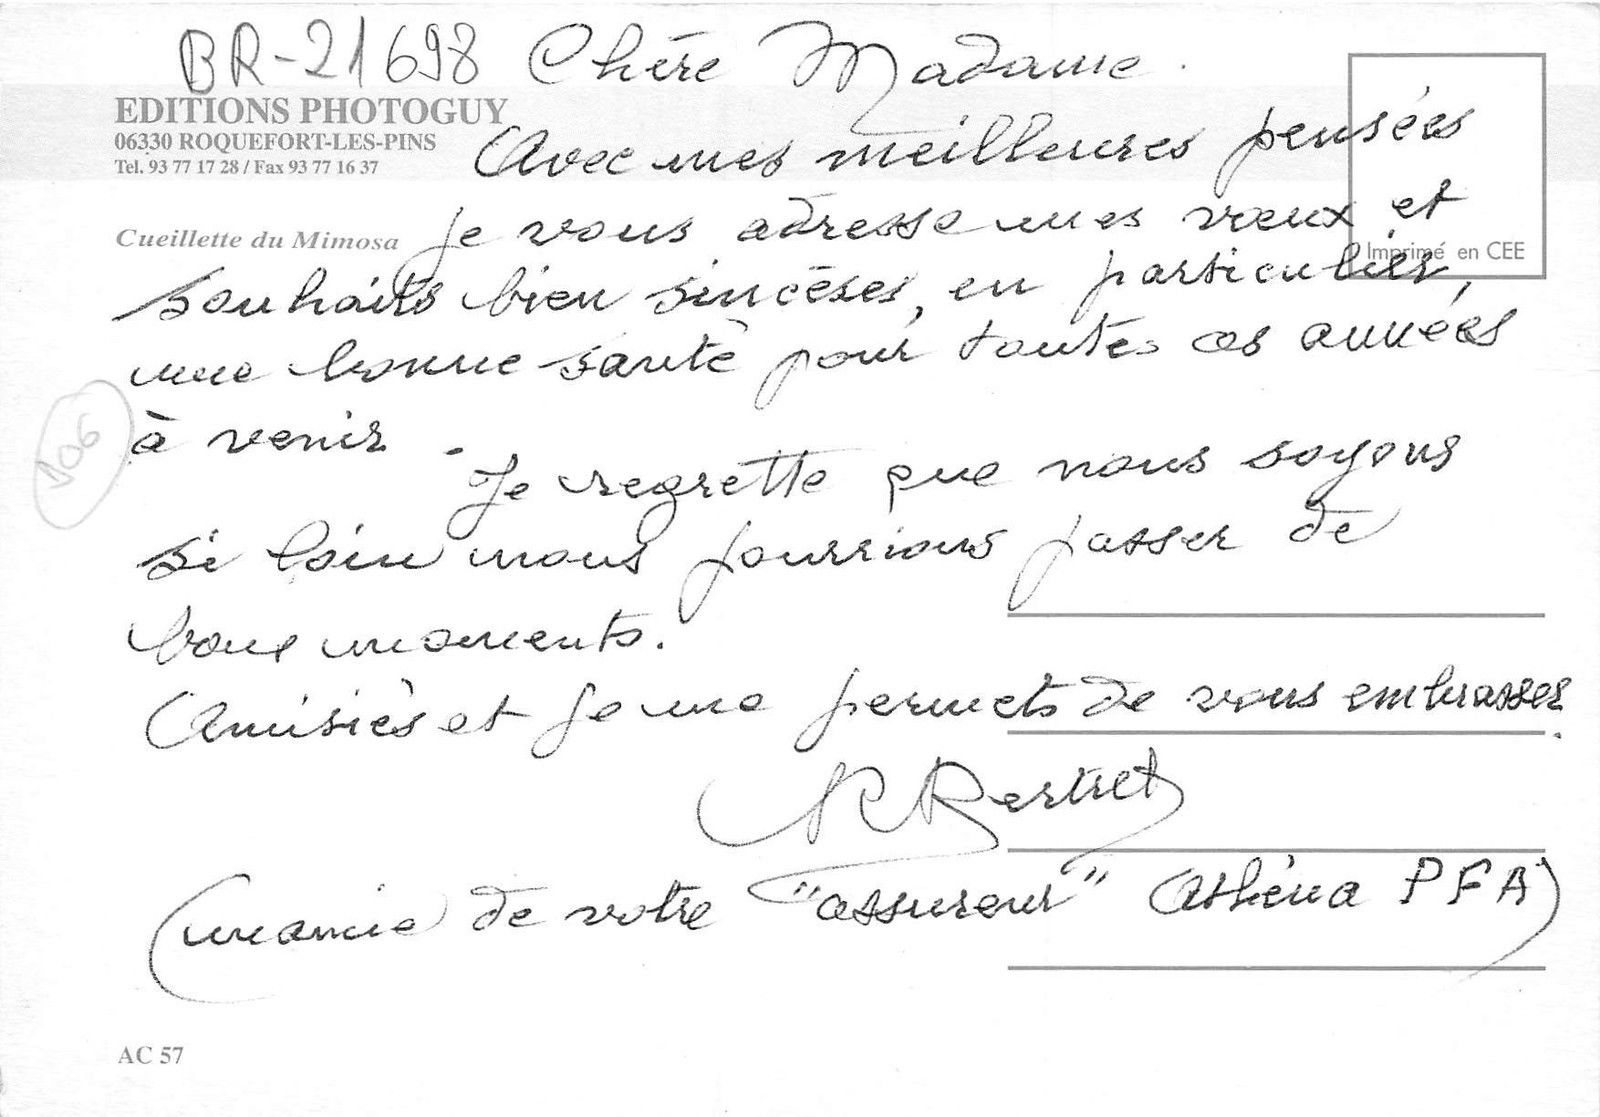 BR-21698 Chère Madame.
EDITIONS PHOTOGUY
06330 ROQUEFORT-LES-PINS
Tel. 93 77 17 28 / Fax 93 77 16 37
Avec mes meilleures pensées
Cueillette du Mimosa
je vous adresse mes vœux et
Imprimé en CEE
souhaits bien sincères, en particulier,
une bonne santé pour toutes ces années
à venir.
Je regrette que nous soyons
si loin nous pourrions passer de
bons moments.
Amitiés et je me permets de vous embrasser.
(mamie de votre "assureur" Athéna PFA)
AC 57